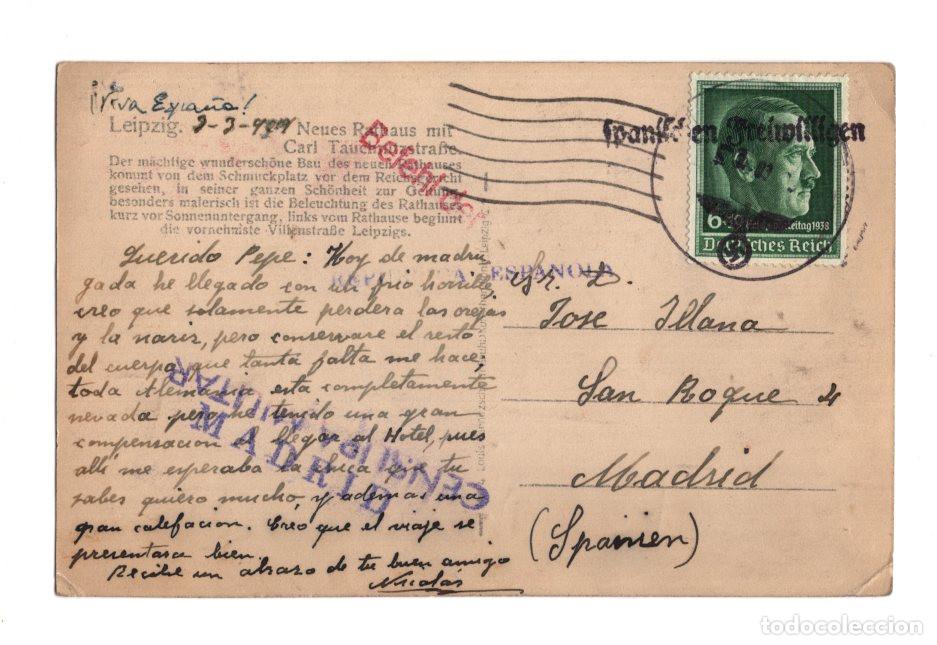 ¡Viva España!
Leipzig. 3-3-
Neues Rathaus mit
Carl Tauchnitzstraße.
Der mächtige wunderschöne Bau des neuen Rathauses
kommt von dem Schmuckplatz vor dem Reichsgericht
gesehen, in seiner ganzen Schönheit zur Geltung
besonders malerisch ist die Beleuchtung des Rathauses
kurz vor Sonnenuntergang, links vom Rathause beginnt
die vornehmste Villenstraße Leipzigs.
Querido Pepe: Hoy de madru
gada he llegado con un frio horrible
creo que solamente perdera las orejas
y la nariz, pero conservare el resto
del cuerpo, que tanta falta me hace,
toda Alemania esta completamente
nevada pero he tenido una gran
compensacion al llegar al Hotel, pues
alli me esperaba la chica que tu
sabes quiero mucho, y ademas una
gran calefacion. Creo que el viaje se
presentara bien.
Recibe un abrazo de tu buen amigo
Nicolás
Befreit
ESPAÑOLA
CENSURA MILITAR
MADRID
spanischen Freiwilligen
6
1938
Deutsches Reich
Sr. D.
Jose Illana
San Roque 4
Madrid
(Spanien)
todocoleccion